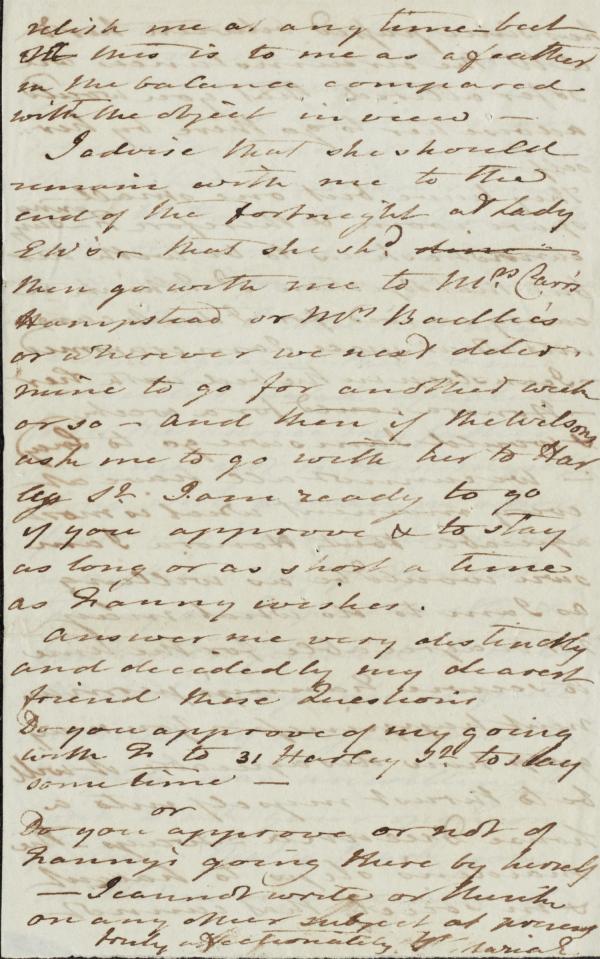 relish me at any time – but
this is to me as a feather
in the balance compared
with the object in view –
I advise that she should
remain with me to the
end of the fortnight at Lady
EW's – that she shd dine
then go with me to Mrs Carr's
Hampstead or Mrs Baillie's
or wherever we next deter
mine to go for another week
or so – and then if the Wilsons
ask me to go with her to Har
ley St. I am ready to go
if you approve & to stay
as long or as short a time
as Fanny wishes.
Answer me very distinctly
and decidedly my dearest
friend these Questions
Do you approve of my going
with F to 31 Harley St. to stay
some time –
or
Do you approve or not of
Fanny's going there by herself
– I cannot write or think
on any other subject at present
truly affectionately Maria E